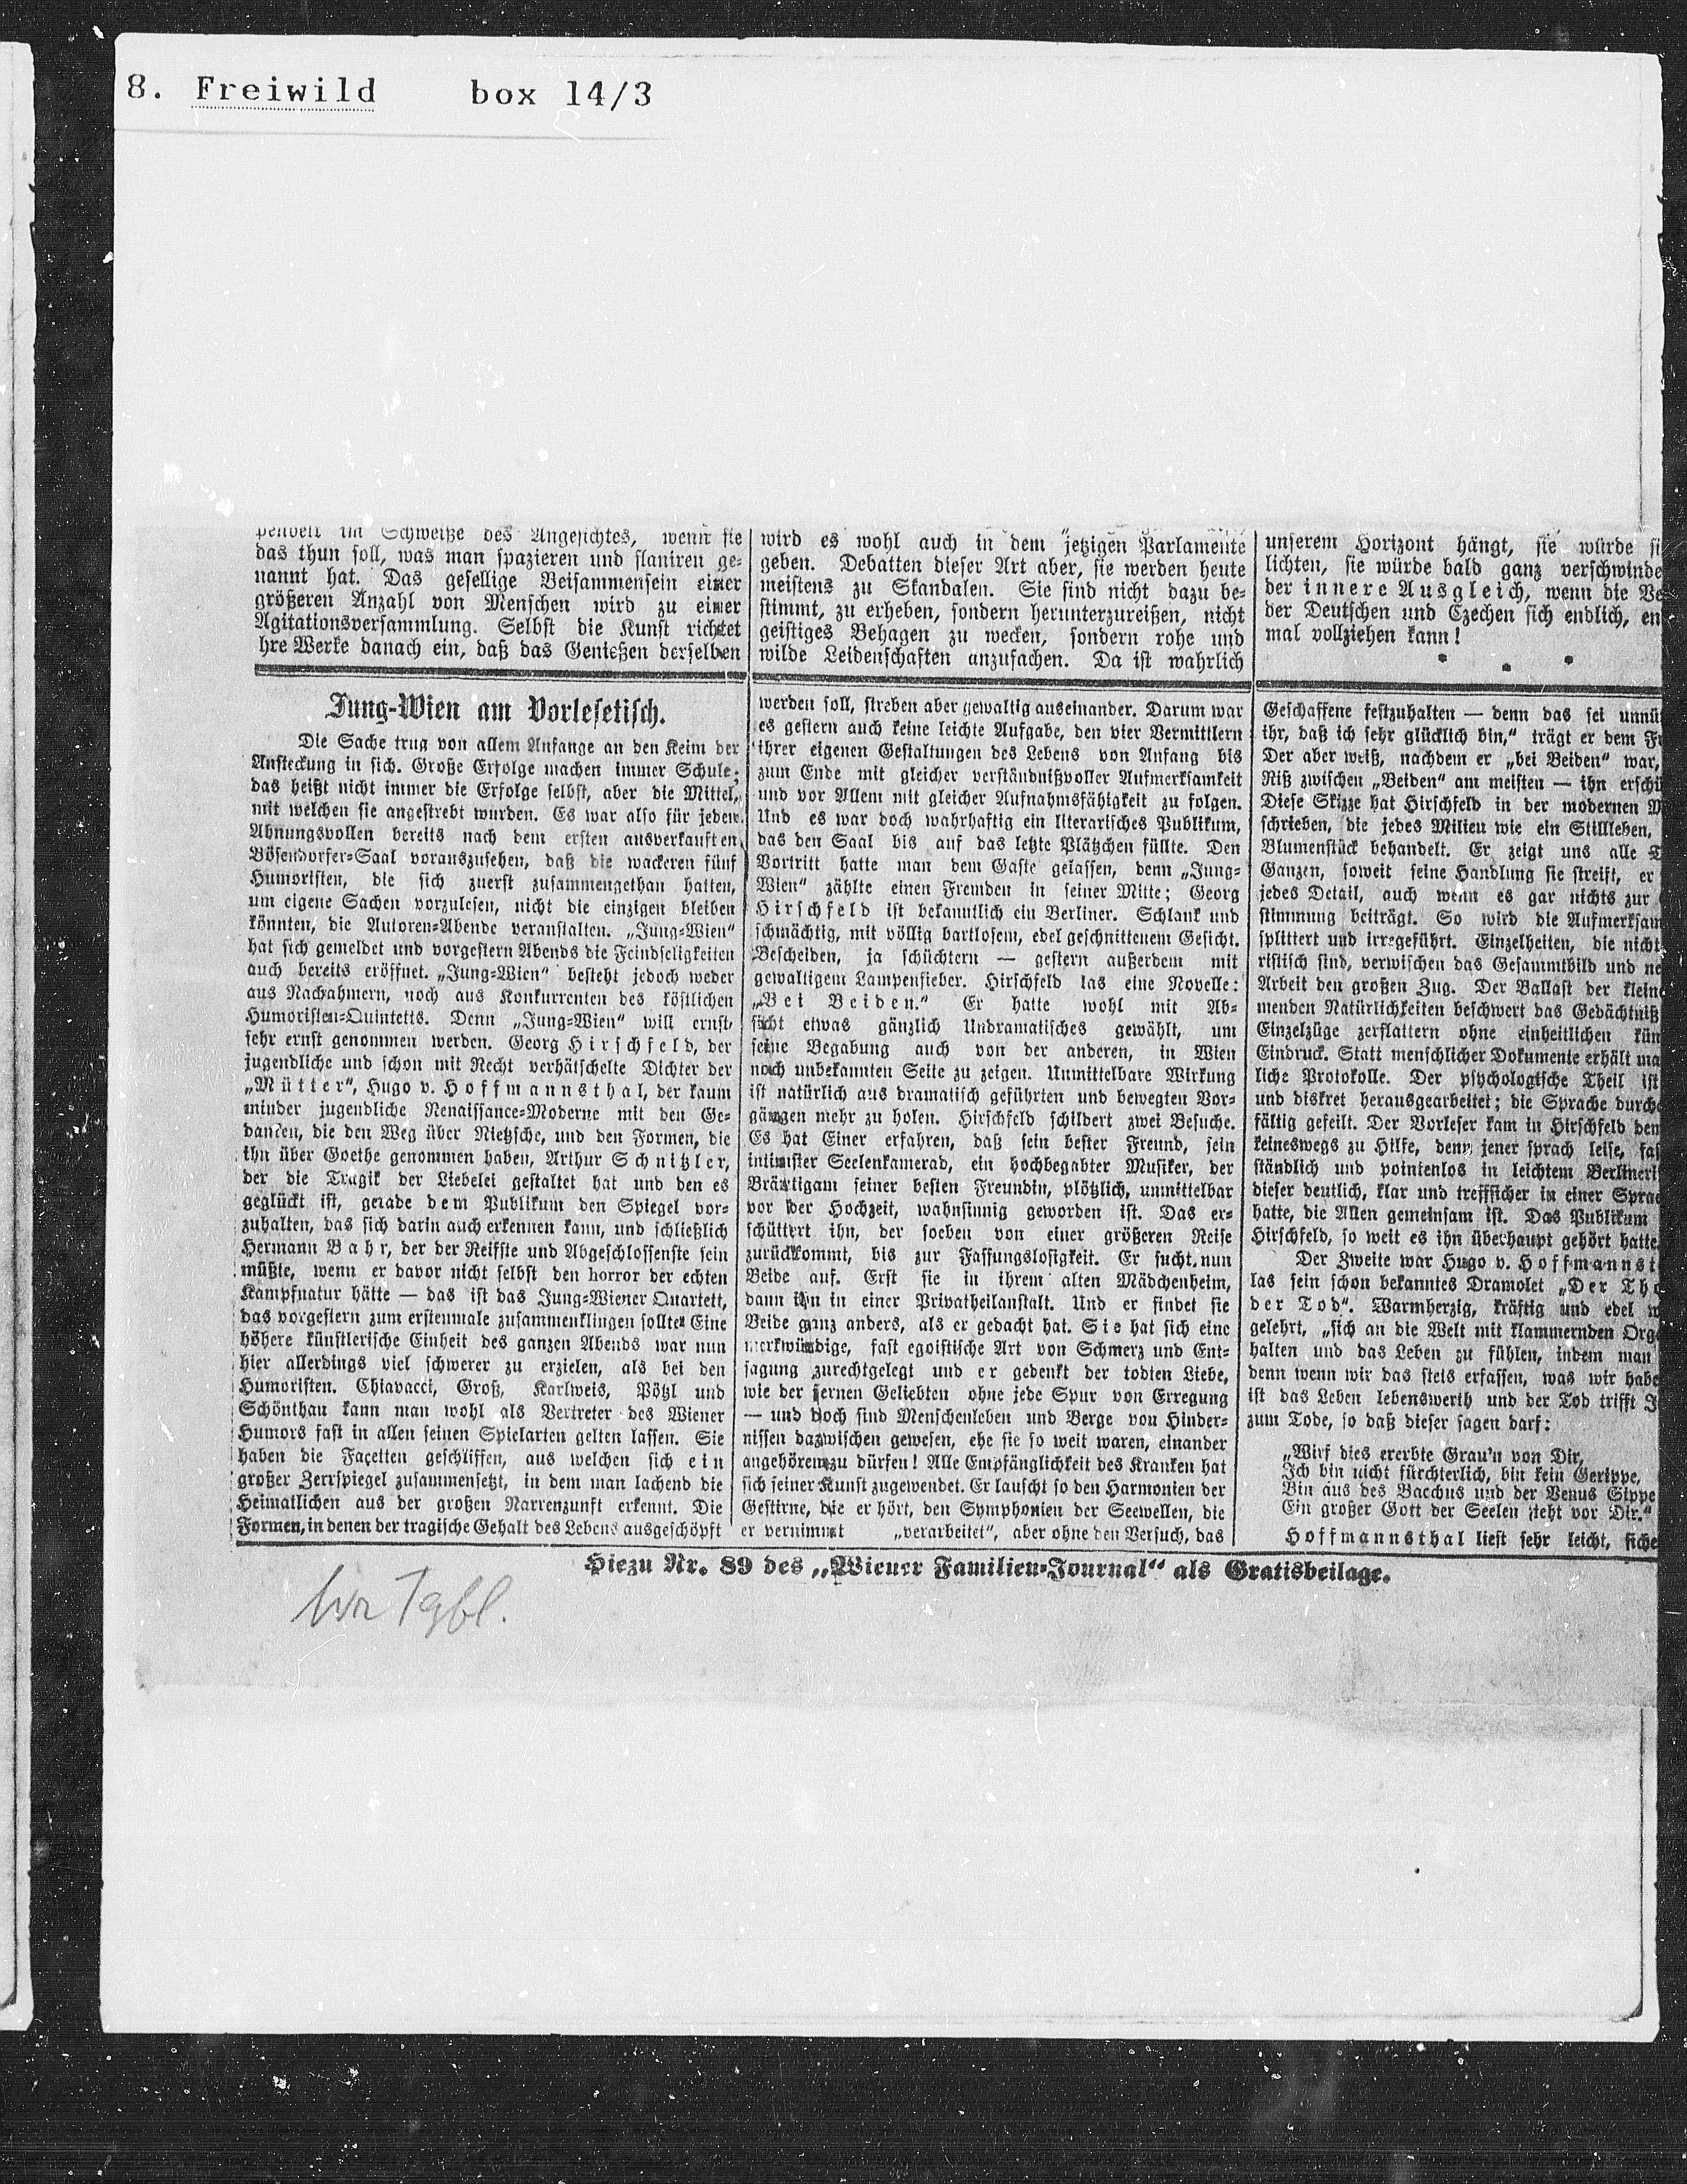 8. Freiwild box 14/3
das thun soll, was man spazieren und flaniren ge-
nannt hat. Das gesellige Beisammensein einer
größeren Anzahl von Menschen wird zu einer
Agitationsversammlung. Selbst die Kunst richtet
hre Werke danach ein, daß das Genießen derselben
wird es wohl auch in dem jetzigen Parlamente
geben. Debatten dieser Art aber, sie werden heute
meistens zu Skandalen. Sie sind nicht dazu be-
stimmt, zu erheben, sondern herunterzureißen, nicht
geistiges Behagen zu wecken, sondern rohe und
wilde Leidenschaften anzufachen. Da ist wahrlich
unserem Horizont hängt, sie würde si
lichten, sie würde bald ganz verschwinde
der innere Ausgleich, wenn die Ve
der Deutschen und Czechen sich endlich, en
mal vollziehen kann!
* * *
Jung-Wien am Vorlesetisch.
Die Sache trug von allem Anfange an den Keim der
Ansteckung in sich. Große Erfolge machen immer Schule;
das heißt nicht immer die Erfolge selbst, aber die Mittel,
mit welchen sie angestrebt wurden. Es war also für jeden
Ahnungsvollen bereits nach dem ersten ausverkauften
Bösendorfer-Saal vorauszusehen, daß die wackeren fünf
Humoristen, die sich zuerst zusammengethan hatten,
um eigene Sachen vorzulesen, nicht die einzigen bleiben
könnten, die Autoren-Abende veranstalten. „Jung-Wien“
hat sich gemeldet und vorgestern Abends die Feindseligkeiten
auch bereits eröffnet. „Jung-Wien“ besteht jedoch weder
aus Nachahmern, noch aus Konkurrenten des köstlichen
Humoristen-Quintetts. Denn „Jung-Wien“ will ernst,
sehr ernst genommen werden. Georg Hirschfeld, der
jugendliche und schon mit Recht verhätschelte Dichter der
„Mütter“, Hugo v. Hoffmannsthal, der kaum
minder jugendliche Renaissance-Moderne mit den Ge-
danken, die den Weg über Nietzsche, und den Formen, die
ihn über Goethe genommen haben, Arthur Schnitzler,
der die Tragik der Liebelei gestaltet hat und den es
geglückt ist, gerade dem Publikum den Spiegel vor-
zuhalten, das sich darin auch erkennen kann, und schließlich
Hermann Bahr, der der Reifste und Abgeschlossenste sein
müßte, wenn er davor nicht selbst den horror der echten
Kampfnatur hätte — das ist das Jung-Wiener Quartett,
das vorgestern zum erstenmale zusammenklingen sollte. Eine
höhere künstlerische Einheit des ganzen Abends war nun
hier allerdings viel schwerer zu erzielen, als bei den
Humoristen. Chiavacci, Groß, Karlweis, Pötzl und
Schönthan kann man wohl als Vertreter des Wiener
Humors fast in allen seinen Spielarten gelten lassen. Sie
haben die Façetten geschliffen, aus welchen sich ein
großer Zerrspiegel zusammensetzt, in dem man lachend die
Heimatlichen aus der großen Narrenzunft erkennt. Die
Formen, in denen der tragische Gehalt des Lebens ausgeschöpft
werden soll, streben aber gewaltig auseinander. Darum war
es gestern auch keine leichte Aufgabe, den vier Vermittlern
ihrer eigenen Gestaltungen des Lebens von Anfang bis
zum Ende mit gleicher verständnißvoller Aufmerksamkeit
und vor Allem mit gleicher Aufnahmsfähigkeit zu folgen.
Und es war doch wahrhaftig ein literarisches Publikum,
das den Saal bis auf das letzte Plätzchen füllte. Den
Vortritt hatte man dem Gaste gelassen, denn „Jung-
Wien“ zählte einen Fremden in seiner Mitte; Georg
Hirschfeld ist bekanntlich ein Berliner. Schlank und
schmächtig, mit völlig bartlosem, edel geschnittenem Gesicht.
Bescheiden, ja schüchtern — gestern außerdem mit
gewaltigem Lampenfieber. Hirschfeld las eine Novelle:
„Bei Beiden.“ Er hatte wohl mit Ab-
sicht etwas gänzlich Undramatisches gewählt, um
seine Begabung auch von der anderen, in Wien
noch unbekannten Seite zu zeigen. Unmittelbare Wirkung
ist natürlich aus dramatisch geführten und bewegten Vor-
gängen mehr zu holen. Hirschfeld schildert zwei Besuche.
Es hat Einer erfahren, daß sein bester Freund, sein
intimster Seelenkamerad, ein hochbegabter Musiker, der
Bräutigam seiner besten Freundin, plötzlich, unmittelbar
vor der Hochzeit, wahnsinnig geworden ist. Das er-
schüttert ihn, der soeben von einer größeren Reise
zurückkommt, bis zur Fassungslosigkeit. Er sucht nun
Beide auf. Erst sie in ihrem alten Mädchenheim,
dann ihn in einer Privatheilanstalt. Und er findet sie
Beide ganz anders, als er gedacht hat. Sie hat sich eine
merkwürdige, fast egoistische Art von Schmerz und Ent-
sagung zurechtgelegt und er gedenkt der todten Liebe,
wie der fernen Geliebten ohne jede Spur von Erregung
— und doch sind Menschenleben und Berge von Hinder-
nissen dazwischen gewesen, ehe sie so weit waren, einander
angehören zu dürfen! Alle Empfänglichkeit des Kranken hat
sich seiner Kunst zugewendet. Er lauscht so den Harmonien der
Gestirne, die er hört, den Symphonien der Seewellen, die
er vernimmt „verarbeitet“, aber ohne den Versuch, das
Geschaffene festzuhalten — denn das sei unnü
ihr, daß ich sehr glücklich bin,“ trägt er dem Fr
Der aber weiß, nachdem er „bei Beiden“ war,
Riß zwischen „Beiden“ am meisten — ihn erschü
Diese Skizze hat Hirschfeld in der modernen M
schrieben, die jedes Milieu wie ein Stillleben,
Blumenstück behandelt. Er zeigt uns alle
Ganzen, soweit seine Handlung sie streift, er
jedes Detail, auch wenn es gar nichts zur
stimmung beiträgt. So wird die Aufmerksam
splittert und irregeführt. Einzelheiten, die nicht
ristisch sind, verwischen das Gesammtbild und ne
Arbeit den großen Zug. Der Ballast der klein
menden Natürlichkeiten beschwert das Gedächtniß
Einzelzüge zerflattern ohne einheitlichen kün
Eindruck. Statt menschlicher Dokumente erhält ma
liche Protokolle. Der psychologische Theil ist
und diskret herausgearbeitet; die Sprache durch
fältig gefeilt. Der Vorleser kam in Hirschfeld dem
keineswegs zu Hilfe, denn jener sprach leise, fas
ständlich und pointenlos in leichtem Berlineri
dieser deutlich, klar und treffsicher in einer Sprac
hatte, die Allen gemeinsam ist. Das Publikum
Hirschfeld, so weit es ihn überhaupt gehört hatte.
Der Zweite war Hugo v. Hoffmannst
las sein schon bekanntes Dramolet „Der Tho
der Tod“. Warmherzig, kräftig und edel w
gelehrt, „sich an die Welt mit klammernden Org
halten und das Leben zu fühlen, indem man
denn wenn wir das stets erfassen, was wir habe
ist das Leben lebenswerth und der Tod trifft J
zum Tode, so daß dieser sagen darf:
„Wirf dies ererbte Grau'n von Dir,
Ich bin nicht fürchterlich, bin kein Gerippe,
Bin aus des Bacchus und der Venus Sippe
Ein großer Gott der Seelen steht vor Dir.“
Hoffmannsthal liest sehr leicht, siche
Hiezu Nr. 89 des „Wiener Familien-Journal“ als Gratisbeilage.
Wr Tgbl.